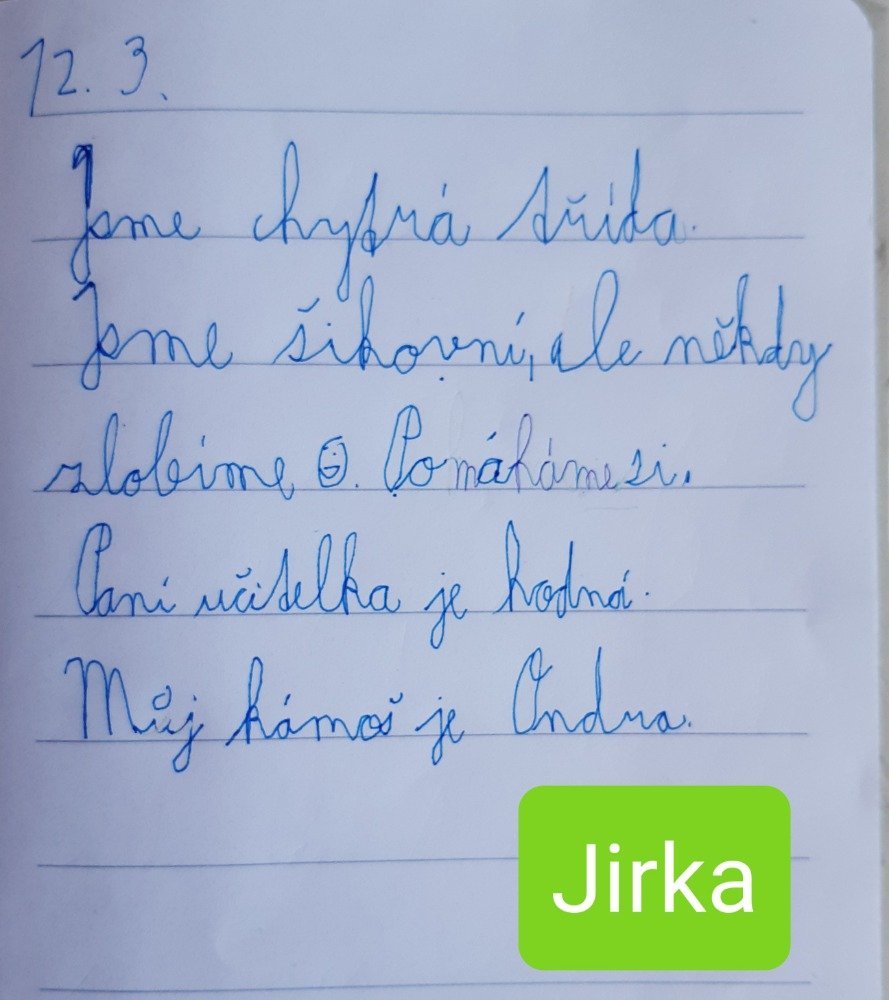 12. 3.
Jsme chytrá třída.
Jsme šikovní, ale někdy
zlobíme ☺. Pomáháme si.
Paní učitelka je hodná.
Můj kámoš je Ondra.
Jirka